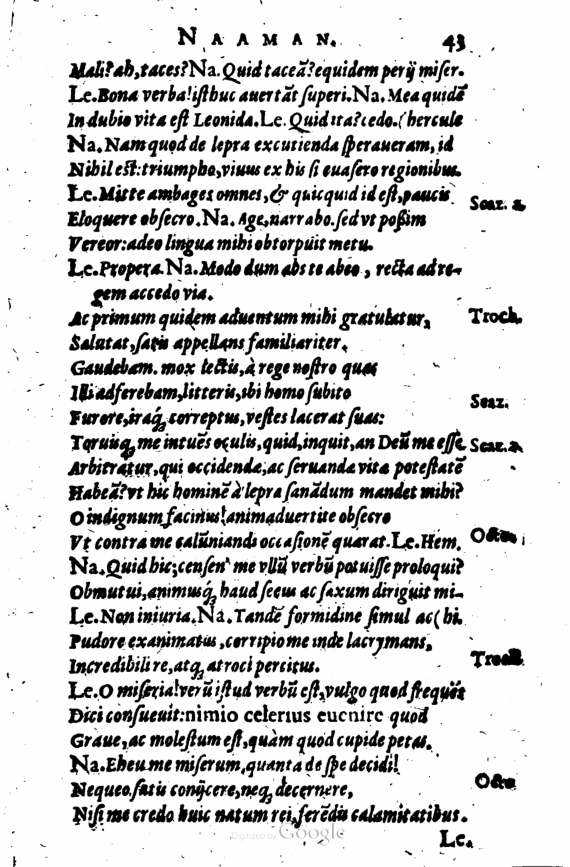 NAAMAN. 43
Mali? ah, taces? Na. Quid taceã? equidem perij miser.
Le. Bona verba! isthuc auertãt superi. Na. Mea quidẽ
In dubio vita est Leonida. Le. Quid ita? cedo. (hercule
Na. Nam quod de lepra excutienda speraueram, id
Nihil est: triumpho, viuus ex his si euasero regionibus.
Le. Mitte ambages omnes, & quicquid id est, paucis
Scaz. a.
Eloquere obsecro. Na. Age, narrabo. sed vt poßim
Vereor: adeo lingua mihi obtorpuit metu.
Le. Propera. Na. Modo dum abs te abeo, recta ad re-
gem accedo via.
Ac primum quidem aduentum mihi gratulatur, Troch.
Salutat, satis appellans familiariter.
Gaudebam. mox lectis, à rege nostro quas
Illi adferebam, litteris, ibi homo subito
Scaz.
Furore, iraq; correptus, vestes lacerat suas:
Toruisq; me intuẽs oculis, quid, inquit, an Deũ me esse Scaz. a.
Arbitratur, qui occidenda, ac seruanda vita potestatẽ
Habeã? vt hic hominẽ à lepra sanãdum mandet mihi?
O indignum facinus! animaduertite obsecro
Vt contra me calũniandi occasionẽ quarat. Le. Hem. Octo.
Na. Quid hic; censen' me vllũ verbũ potuisse proloqui?
Obmutui, animusq; haud secus ac saxum diriguit mi-
Le. Non iniuria. Na. Tandẽ formidine simul ac (hi.
Pudore exanimatus, corripio me inde lacrymans,
Incredibili re, atq; atroci percitus. Troch.
Le. O miseria! verũ istud verbũ est, vulgo quod frequẽs
Dici consueuit: nimio celerius euenire quod
Graue, ac molestum est, quàm quod cupide petas.
Na. Eheu me miserum, quanta de spe decidi!
Nequeo satis conijcere, neq; decernere, Octo
Nisi me credo huic natum rei, ferẽdis calamitatibus.
Le.
Digitized by Google